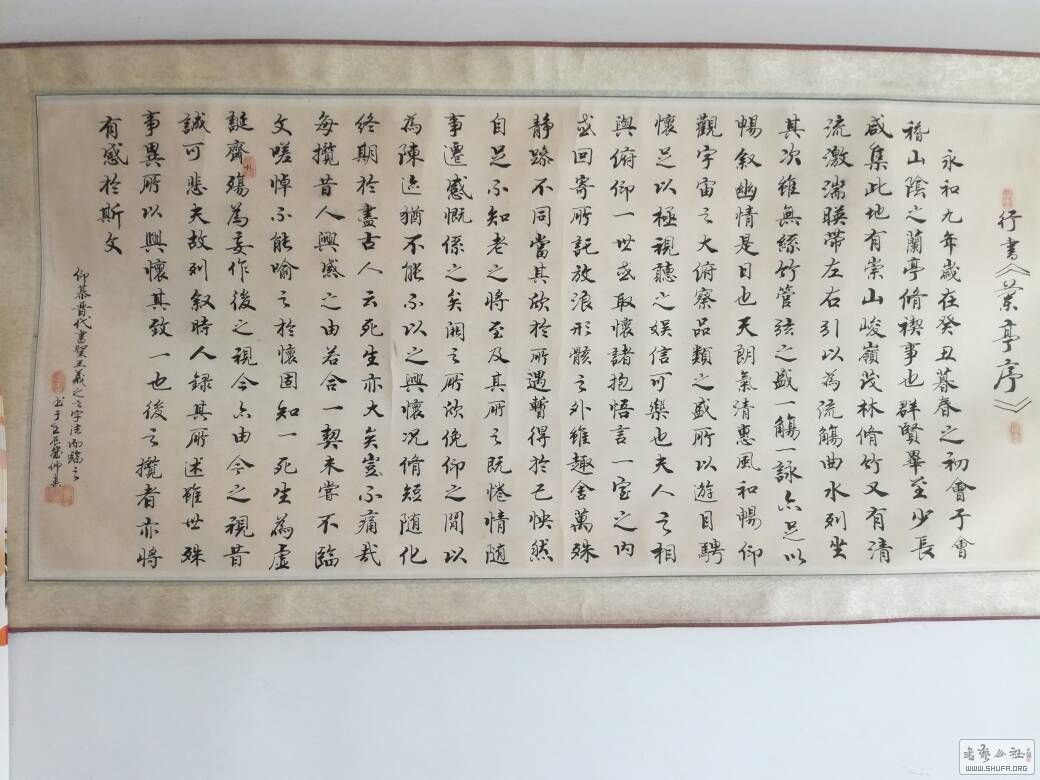 行書《蘭亭序》
永和九年歲在癸丑暮春之初會于會
稽山陰之蘭亭脩禊事也群賢畢至少長
咸集此地有崇山峻嶺茂林脩竹又有清
流激湍暎帶左右引以為流觴曲水列坐
其次雖無絲竹管弦之盛一觴一詠亦足以
暢叙幽情是日也天朗氣清惠風和暢仰
觀宇宙之大俯察品類之盛所以遊目騁
懷足以極視聽之娛信可樂也夫人之相
與俯仰一世或取懷諸抱悟言一室之內
或回寄所託放浪形骸之外雖趣舍萬殊
靜躁不同當其欣於所遇暫得於己怏然
自足不知老之將至及其所之既惓情随
事遷感慨係之矣闗之所欣俛仰之間以
為陳迹猶不能不以之興懷况脩短随化
終期於盡古人云死生亦大矣豈不痛哉
每攬昔人興感之由若合一契未嘗不臨
文嗟悼不能喻之於懷固知一死生為虛
誕齊殤為妄作後之視今亦由今之視昔
誠可悲夫故列叙時人錄其所述雖世殊
事異所以興懷其致一也後之攬者亦將
有感於斯文
仰慕晉代書聖王羲之之字法而臨之
書于壬辰歲仲
書藝公社
WWW.SHUFA.ORG